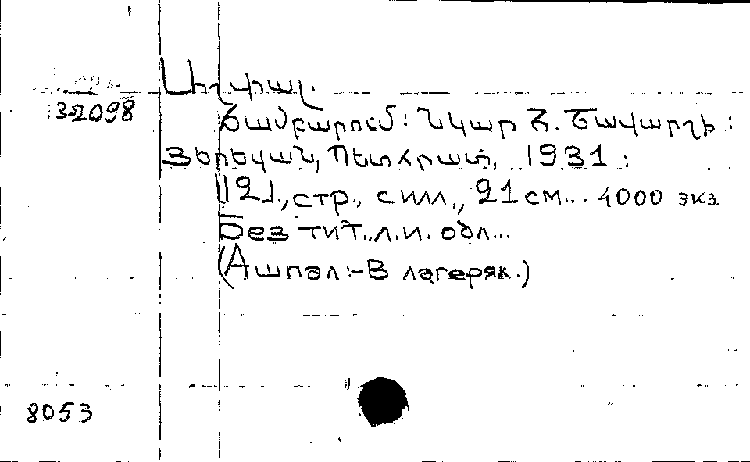 Աշպալ.
32098
Ճամբարում: Նկար Հ. Ծավարդի:
Յերեվան, Պետհրատ, 1931:
112., стр., с илл., 21 см... 4000 экз
Без тит. л. и. обл...
(Ашпал:-В лагерях.)
8053